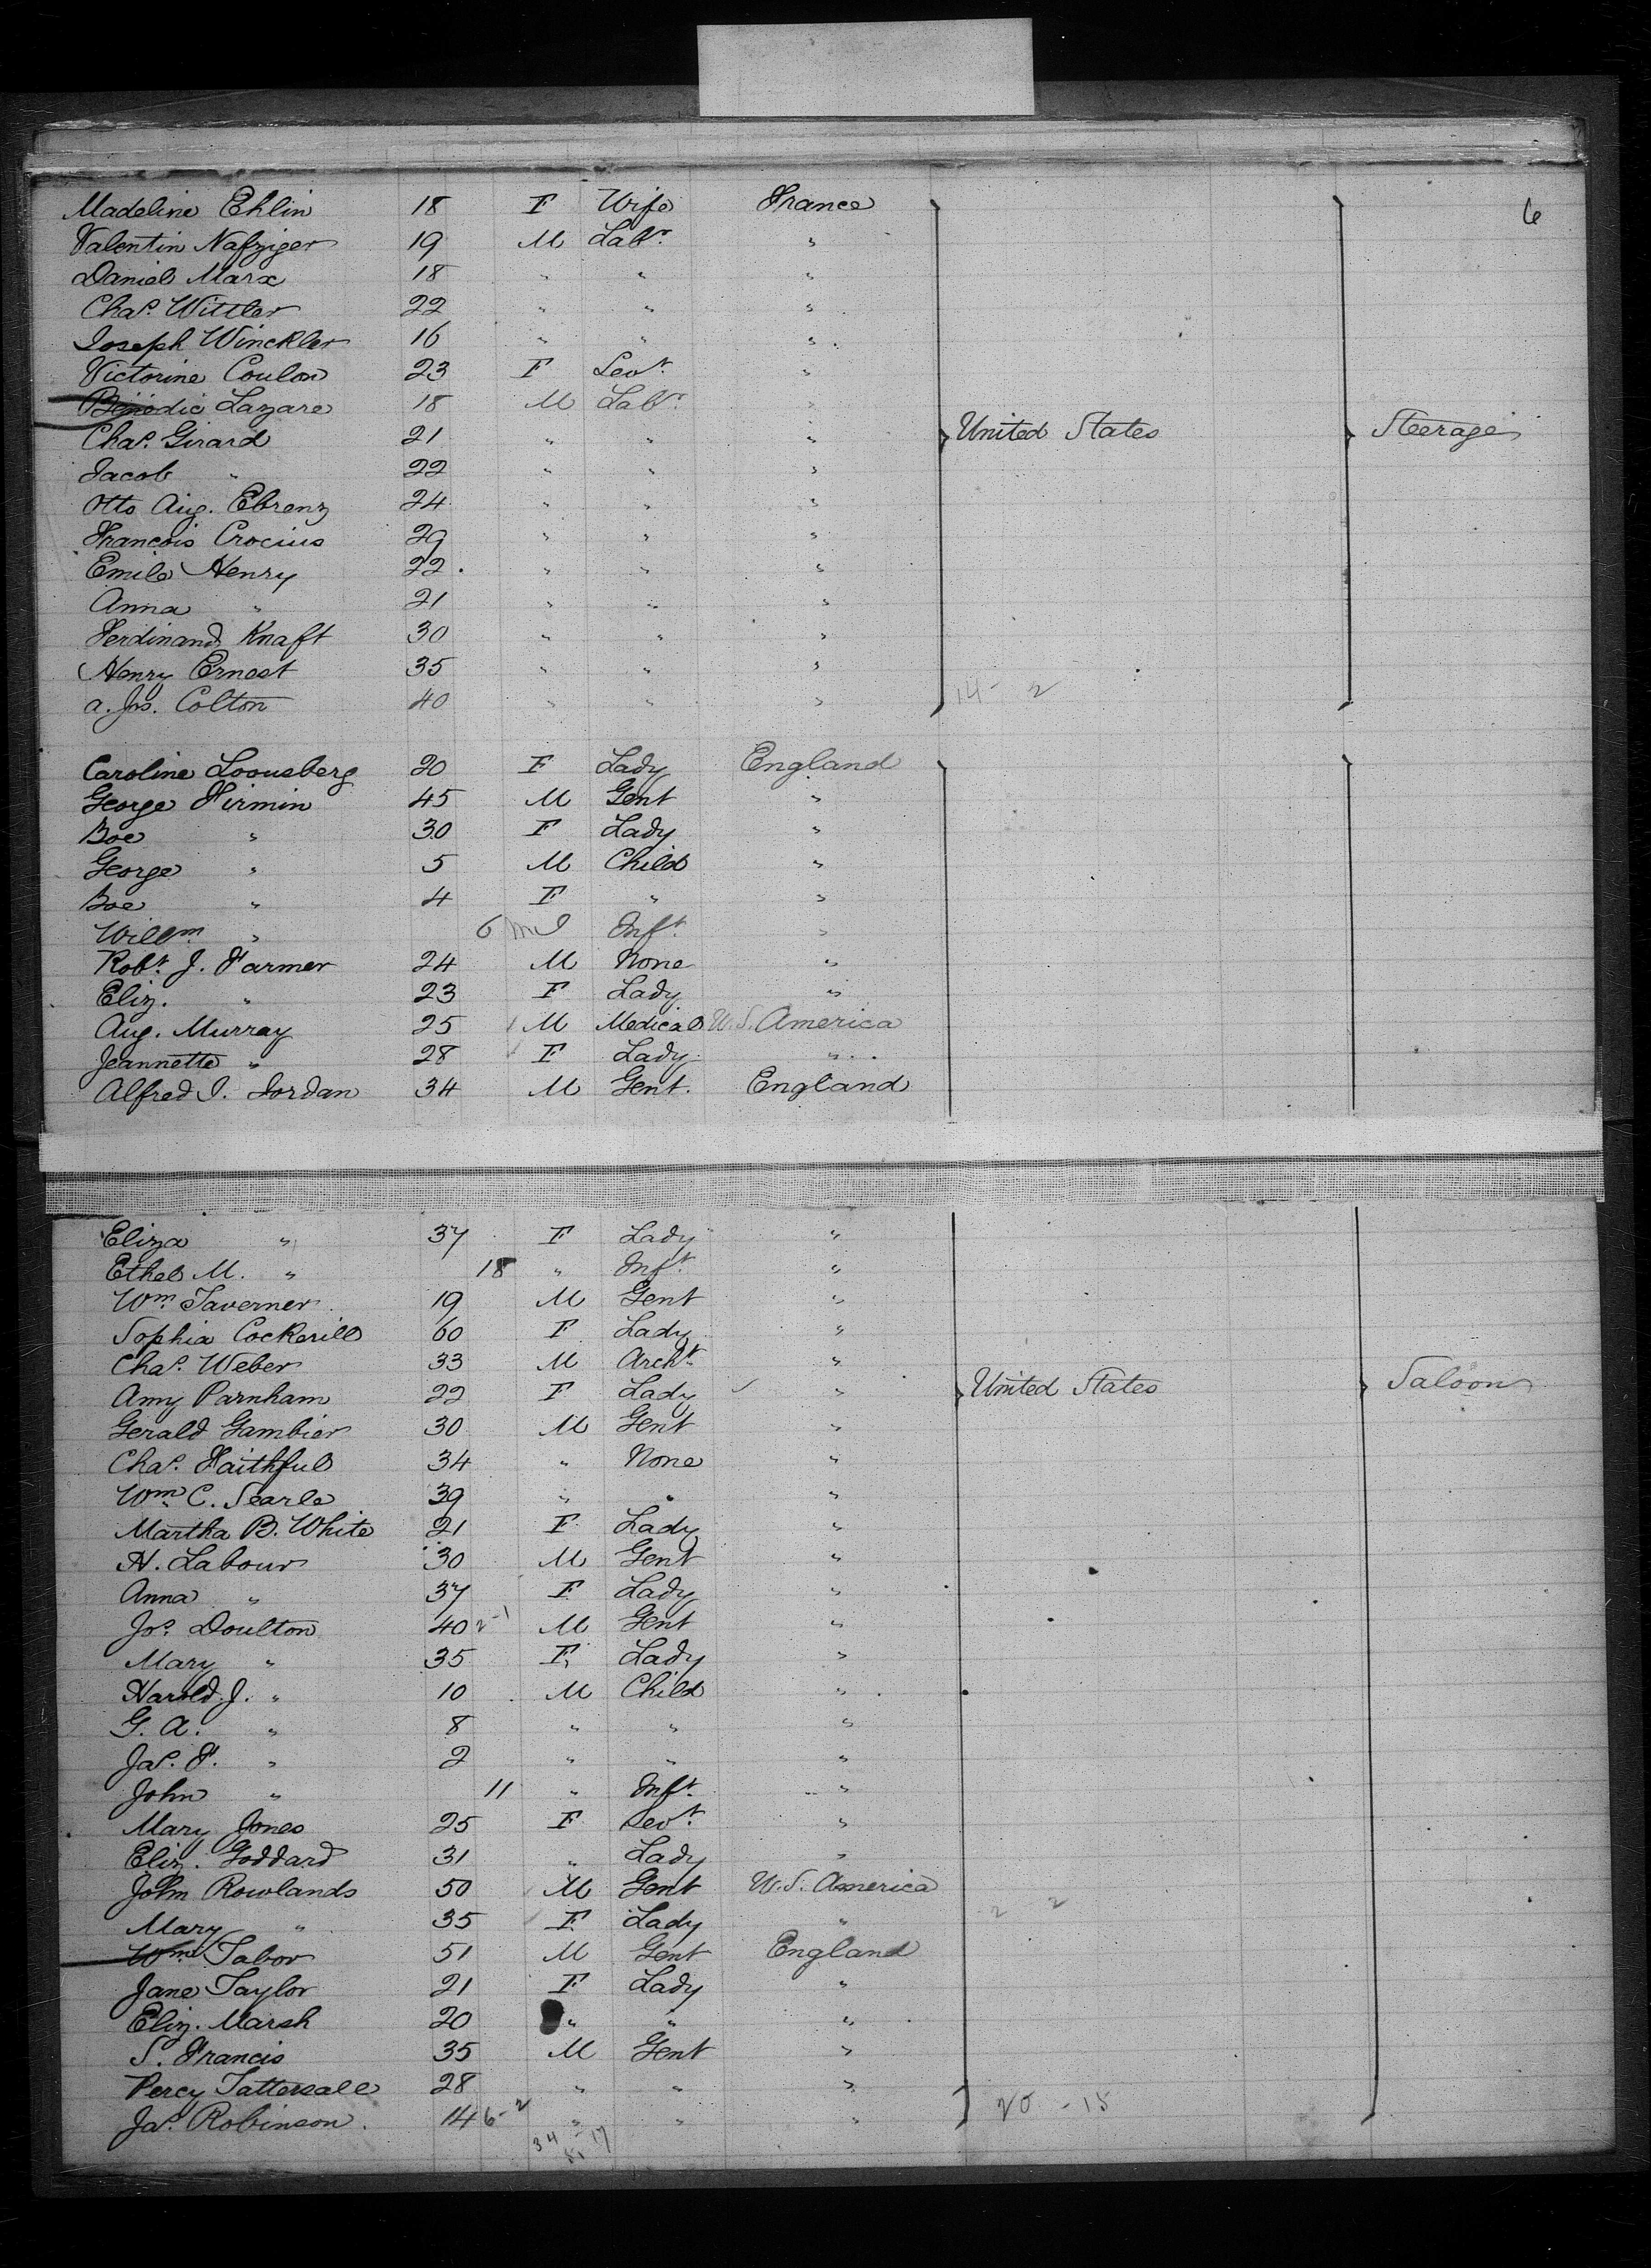 6
Madeline Ehlin 18 F Wife France
Valentin Nafziger 19 M Labr. "
Daniel Marx 18 " " "
Chas. Wittler 22 " " "
Joseph Winckler 16 " " "
Victorine Coulon 23 F Sevt. "
Benedic Lazare 18 M Labr. "
Chas. Girard 21 " " " United States Steerage
Jacob " 22 " " "
Otto Aug. Ebrenz 24 " " "
Francois Crocius 29 " " "
Emile Henry 22 " " "
Anna " 21 " " "
Ferdinand Knaft 30 " " "
Henry Ernest 35 " " "
A. Jos. Colton 40 " " " 14 - 2
Caroline Loousberg 20 F Lady England
George Firmin 45 M Gent "
Zoe " 30 F Lady "
George " 5 M Child "
Zoe " 4 F " "
Willm. " 6 M Inft. "
Robt. J. Farmer 24 M None "
Eliz. " 23 F Lady "
Aug. Murray 25 M Medical U.S. America
Jeannette " 28 F Lady "
Alfred I. Jordan 34 M Gent. England
Eliza " 37 F Lady "
Ethel M. " 18 " Inft. "
Wm. Taverner 19 M Gent "
Sophia Cockerill 60 F Lady "
Chas. Weber 33 M Archt. "
Amy Parnham 22 F Lady " United States Saloon
Gerald Gambier 30 M Gent "
Chas. Faithful 34 " None "
Wm. C. Searle 39 " " "
Martha B. White 21 F Lady "
H. Labour 30 M Gent "
Anna " 37 F Lady "
Jos. Doulton 40 2-1 M Gent "
Mary " 35 F Lady "
Harold J. " 10 M Child "
G. A. " 8 " " "
Jas. F. " 2 " " "
John " 11 " Inft. "
Mary Jones 25 F Sevt. "
Eliz. Goddard 31 " Lady "
John Rowlands 50 M Gent U.S. America
Mary " 35 F Lady " 2 2
Wm. Tabor 51 M Gent England
Jane Taylor 21 F Lady "
Eliz. Marsh 20 " " "
S. Francis 35 M Gent "
Percy Tattersall 28 " " "
Jas. Robinson 14 6-2 " " " 20 - 15
34 17